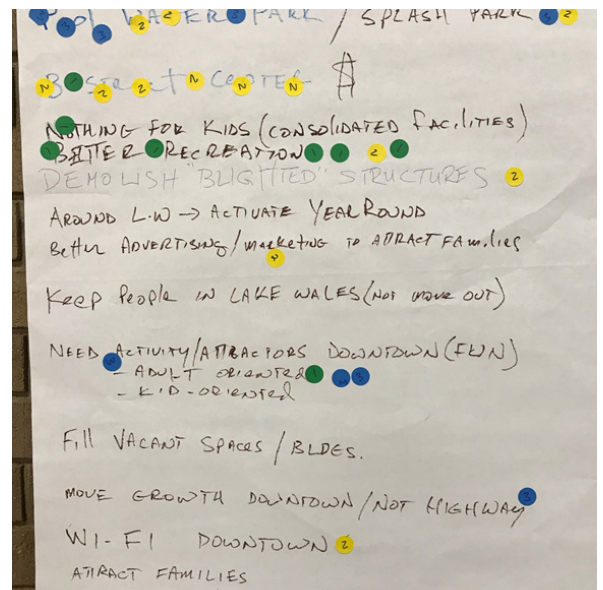 Pool WATER PARK / SPLASH PARK
$
NOTHING FOR KIDS (CONSOLIDATED FACILITIES)
BETTER RECREATION
DEMOLISH "BLIGHTED" STRUCTURES 2
AROUND L.W → ACTIVATE YEAR ROUND
Better ADVERTISING/marketing to ATTRACT FAMilies
Keep People IN LAKE WALES (NOT move OUT)
NEED ACTIVITY/ATTRACTORS DOWNTOWN (FUN)
- ADULT ORIENTED 1 3
- KID-ORIENTED
Fill VACANT SPACES / BLDGS.
MOVE GROWTH DOWNTOWN / NOT HIGHWAY 3
WI-FI DOWNTOWN 2
ATTRACT FAMILIES